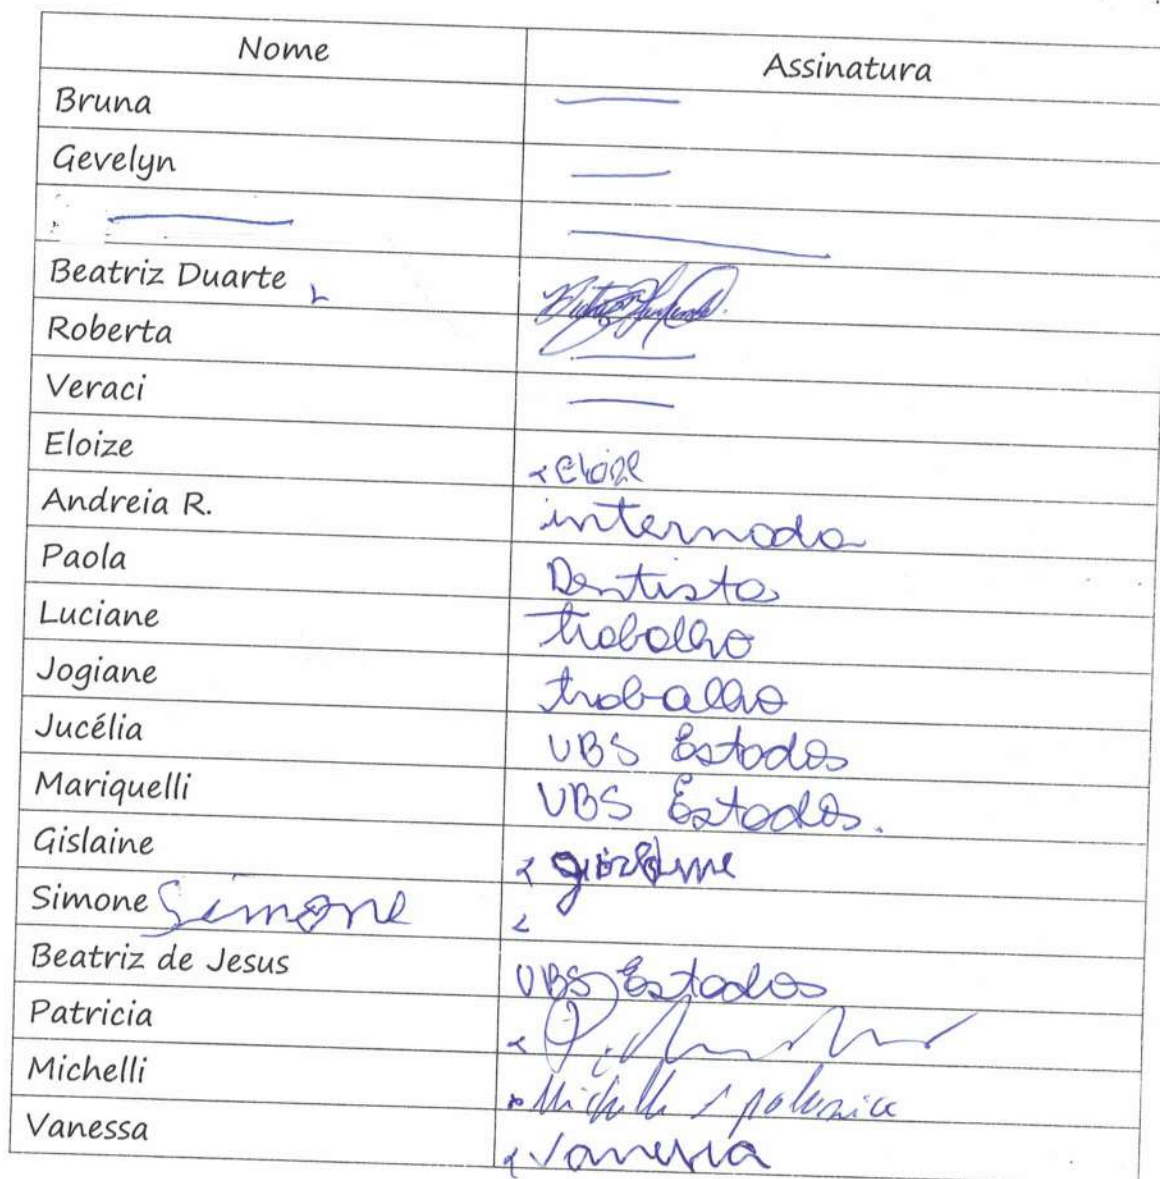 Nome Assinatura
Bruna
Gevelyn
Beatriz Duarte
Roberta
Veraci
Eloize Eloize
Andreia R. internada
Paola Dentista
Luciane trabalho
Jogiane trabalho
Jucélia UBS Estados
Mariquelli UBS Estados.
Gislaine gislaine
Simone Simone
Beatriz de Jesus UBS Estados
Patricia
Michelli Michelli
Vanessa Vanessa